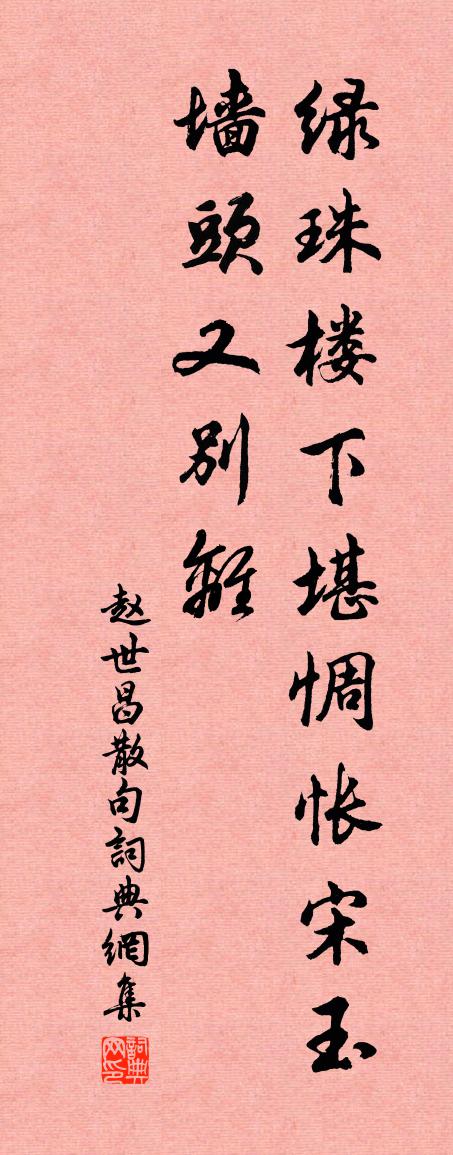 绿珠楼下堪惆怅宋玉
墙头又别離
赵世昌散句詞典網集
詞典网印